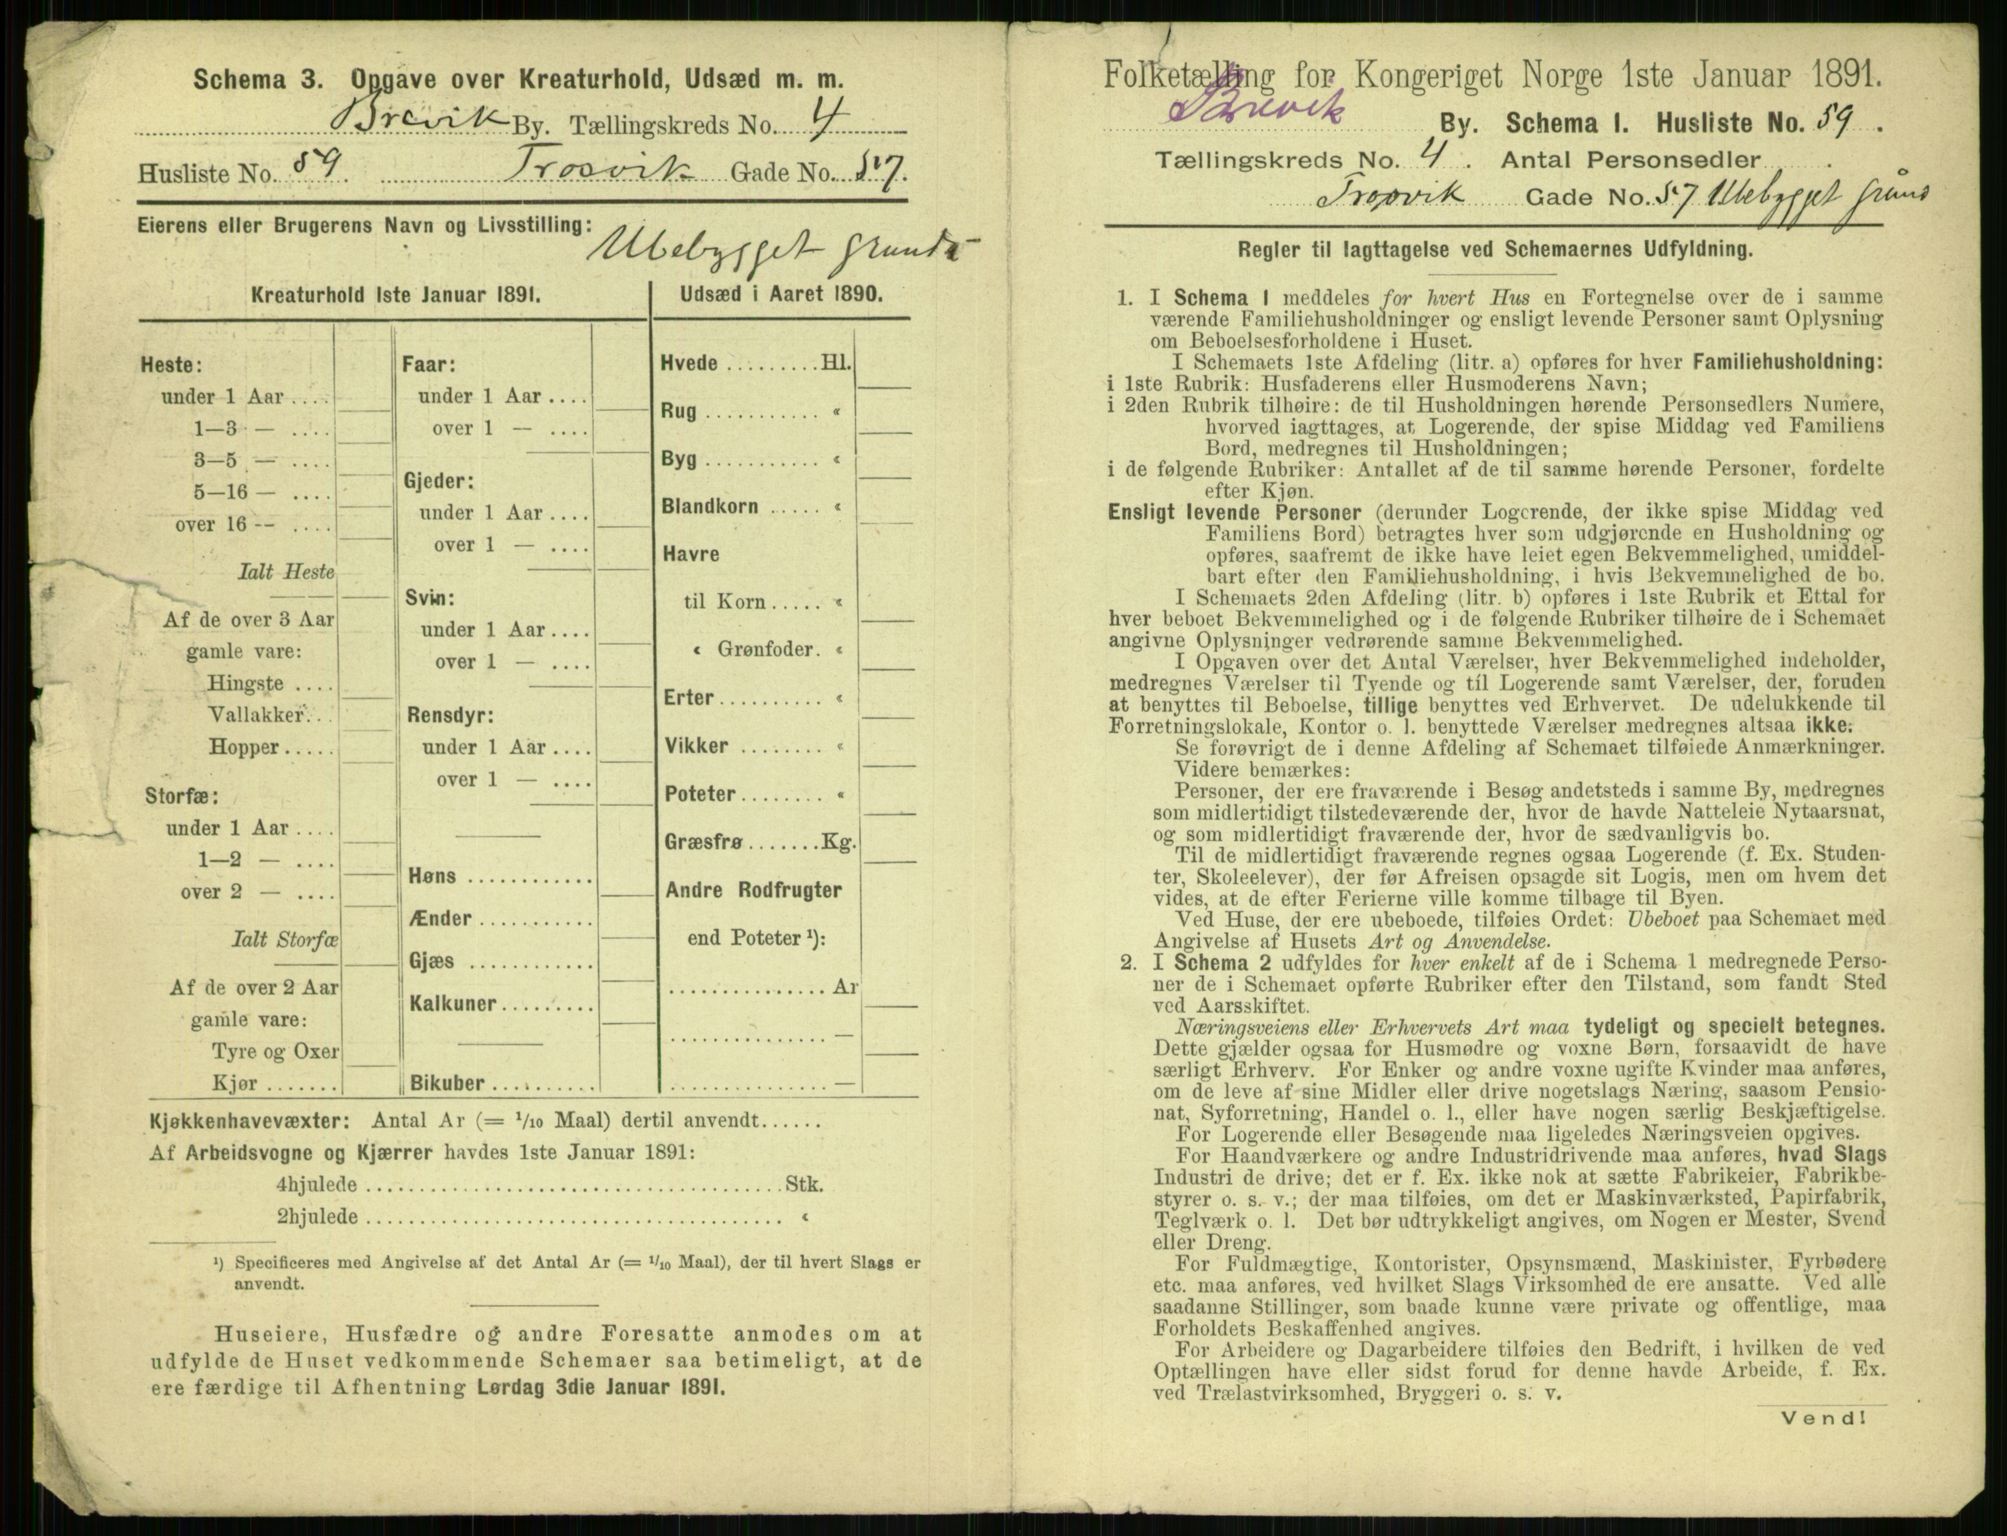 Schema 3. Opgave over Kreaturhold, Udsæd m. m.
Brevik By. Tællingskreds No. 4
Husliste No. 59. Trosvik Gade No. 57.
Eierens eller Brugerens Navn og Livsstilling:
Ubebygget grund
Kreaturhold 1ste Januar 1891.
Heste:
under 1 Aar ....
1—3 — ....
3—5 — ....
5—16 — ....
over 16 -- ....
Ialt Heste
Af de over 3 Aar
gamle vare:
Hingste ....
Vallakker...
Hopper.....
Storfæ:
under 1 Aar ....
1—2 — ....
over 2 — ....
Ialt Storfæ
Af de over 2 Aar
gamle vare:
Tyre og Oxer
Kjør .......
Faar:
under 1 Aar ....
over 1 — ....
Gjeder:
under 1 Aar ....
over 1 — ....
Svin:
under 1 Aar ....
over 1 — ....
Rensdyr:
under 1 Aar ....
over 1 — ....
Høns ............
Ænder ...........
Gjæs ............
Kalkuner.........
Bikuber ..........
Udsæd i Aaret 1890.
Hvede .........Hl.
Rug ........... «
Byg ........... «
Blandkorn ..... «
Havre
til Korn..... «
« Grønfoder. «
Erter.......... «
Vikker ........ «
Poteter........ «
Græsfrø.......Kg.
Andre Rodfrugter
end Poteter ¹):
............... Ar
............... —
............... —
Kjøkkenhavevæxter: Antal Ar (= 1/10 Maal) dertil anvendt......
Af Arbeidsvogne og Kjærrer havdes 1ste Januar 1891:
4hjulede ........................................Stk.
2hjulede ........................................ «
¹) Specificeres med Angivelse af det Antal Ar (= 1/10 Maal), der til hvert Slags er
anvendt.
Huseiere, Husfædre og andre Foresatte anmodes om at
udfylde de Huset vedkommende Schemaer saa betimeligt, at de
ere færdige til Afhentning Lørdag 3die Januar 1891.
Folketælling for Kongeriget Norge 1ste Januar 1891.
Brevik By. Schema 1. Husliste No. 59.
Tællingskreds No. 4. Antal Personsedler .
Trosvik Gade No. 57 Ubebygget grund
Regler til Iagttagelse ved Schemaernes Udfyldning.
1. I Schema 1 meddeles for hvert Hus en Fortegnelse over de i samme
værende Familiehusholdninger og ensligt levende Personer samt Oplysning
om Beboelsesforholdene i Huset.
I Schemaets 1ste Afdeling (litr. a) opføres for hver Familiehusholdning:
i 1ste Rubrik: Husfaderens eller Husmoderens Navn;
i 2den Rubrik tilhøire: de til Husholdningen hørende Personsedlers Numere,
hvorved iagttages, at Logerende, der spise Middag ved Familiens
Bord, medregnes til Husholdningen;
i de følgende Rubriker: Antallet af de til samme hørende Personer, fordelte
efter Kjøn.
Ensligt levende Personer (derunder Logerende, der ikke spise Middag ved
Familiens Bord) betragtes hver som udgjørende en Husholdning og
opføres, saafremt de ikke have leiet egen Bekvemmelighed, umiddel-
bart efter den Familiehusholdning, i hvis Bekvemmelighed de bo.
I Schemaets 2den Afdeling (litr. b) opføres i 1ste Rubrik et Ettal for
hver beboet Bekvemmelighed og i de følgende Rubriker tilhøire de i Schemaet
angivne Oplysninger vedrørende samme Bekvemmelighed.
I Opgaven over det Antal Værelser, hver Bekvemmelighed indeholder,
medregnes Værelser til Tyende og til Logerende samt Værelser, der, foruden
at benyttes til Beboelse, tillige benyttes ved Erhvervet. De udelukkende til
Forretningslokale, Kontor o. l. benyttede Værelser medregnes altsaa ikke.
Se forøvrigt de i denne Afdeling af Schemaet tilføiede Anmærkninger.
Videre bemærkes:
Personer, der ere fraværende i Besøg andetsteds i samme By, medregnes
som midlertidigt tilstedeværende der, hvor de havde Natteleie Nytaarsnat,
og som midlertidigt fraværende der, hvor de sædvanligvis bo.
Til de midlertidigt fraværende regnes ogsaa Logerende (f. Ex. Studen-
ter, Skoleelever), der før Afreisen opsagde sit Logis, men om hvem det
vides, at de efter Ferierne ville komme tilbage til Byen.
Ved Huse, der ere ubeboede, tilføies Ordet: Ubeboet paa Schemaet med
Angivelse af Husets Art og Anvendelse.
2. I Schema 2 udfyldes for hver enkelt af de i Schema 1 medregnede Perso-
ner de i Schemaet opførte Rubriker efter den Tilstand, som fandt Sted
ved Aarsskiftet.
Næringsveiens eller Erhvervets Art maa tydeligt og specielt betegnes.
Dette gjælder ogsaa for Husmødre og voxne Børn, forsaavidt de have
særligt Erhverv. For Enker og andre voxne ugifte Kvinder maa anføres,
om de leve af sine Midler eller drive nogetslags Næring, saasom Pensio-
nat, Syforretning, Handel o. l., eller have nogen særlig Beskjæftigelse.
For Logerende eller Besøgende maa ligeledes Næringsveien opgives.
For Haandværkere og andre Industridrivende maa anføres, hvad Slags
Industri de drive; det er f. Ex. ikke nok at sætte Fabrikeier, Fabrikbe-
styrer o. s. v.; der maa tilføies, om det er Maskinværksted, Papirfabrik,
Teglværk o. l. Det bør udtrykkeligt angives, om Nogen er Mester, Svend
eller Dreng.
For Fuldmægtige, Kontorister, Opsynsmænd, Maskinister, Fyrbødere
etc. maa anføres, ved hvilket Slags Virksomhed de ere ansatte. Ved alle
saadanne Stillinger, som baade kunne være private og offentlige, maa
Forholdets Beskaffenhed angives.
For Arbeidere og Dagarbeidere tilføies den Bedrift, i hvilken de ved
Optællingen have eller sidst forud for denne havde Arbeide, f. Ex.
ved Trælastvirksomhed, Bryggeri o. s. v.
Vend!